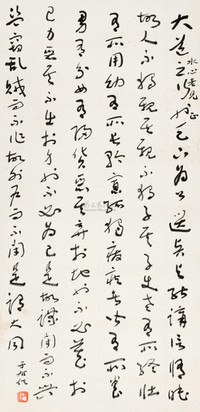 水心兄正
大道之行也天下為公選賢與能講信修睦
故人不獨親其親不獨子其子使老有所終壯
有所用幼有所長矜寡孤獨廢疾者皆有所養
男有分女有歸貨惡其棄於地也不必藏於
己力惡其不出於身也不必為己是故謀閉而不興
盜竊亂賊而不作故外戶而不閉是謂大同
于右任